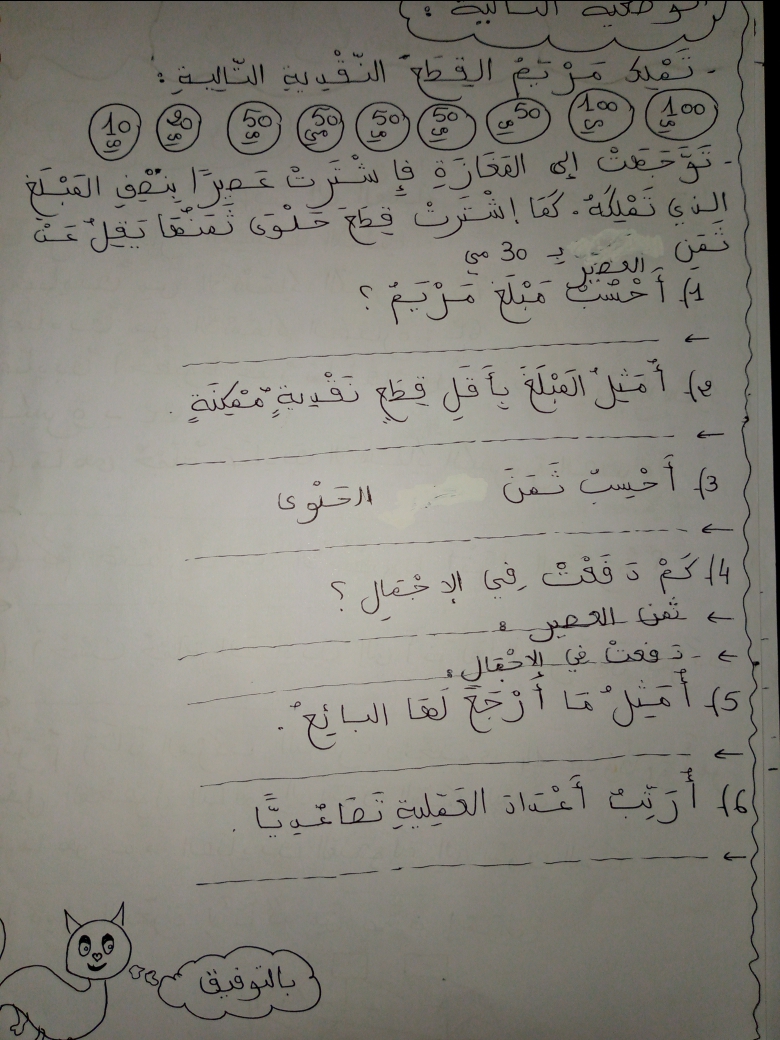 الوضعية التالية :
- تَمْلِكُ مَرْيَمُ القِطَعَ النَّقْدِيةِ التَّاليةِ :
100 مي 100 مي 50 مي 50 مي 50 مي 50 مي 50 مي 20 مي 10 مي
- تَوَّجَهَتْ إلى المَغَازَةِ فإِ شْتَرَتْ عَصِيرًا بِنِصْفِ المَبْلَغِ
الذي تَمْلِكُهُ. كَمَا إشْتَرَتْ قِطَعَ حَلْوَى ثَمَنُهَا يَقِلُ عَنْ
ثَمَنِ العصير بِـ 30 مي
1) أَحْسُبُ مَبْلَغَ مَرْيَمُ ؟
←
2) أُمَثِلُ المَبْلَغَ بِأَقَلِ قِطَعٍ نَقْدِيةٍ مُمْكِنَةٍ .
←
3) أَحْسِبُ ثَمَنَ الحَلْوى
←
4) كَمْ دَفَعَتْ فِي الإِجْمَالِ ؟
← ثمن العصير :
← - دفعتْ في الاجْمَالِ :
5) أُمَثِلُ مَا أُرْجَعَ لَهَا البائِعُ .
←
6) أُرَتِّبُ أَعْدَادَ العَمَلِيةِ تَصَاعُدِيًّا .
←
بالتوفيق